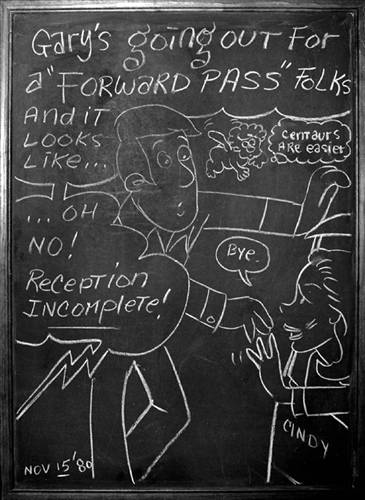 Gary's going out For
a "FORWARD PASS" FOLKS
And it
LOOKS
Like...
centaurs
ARe easier
... OH
NO!
Bye.
Reception
INCOMPLETE!
CINDY
NOV 15 '80